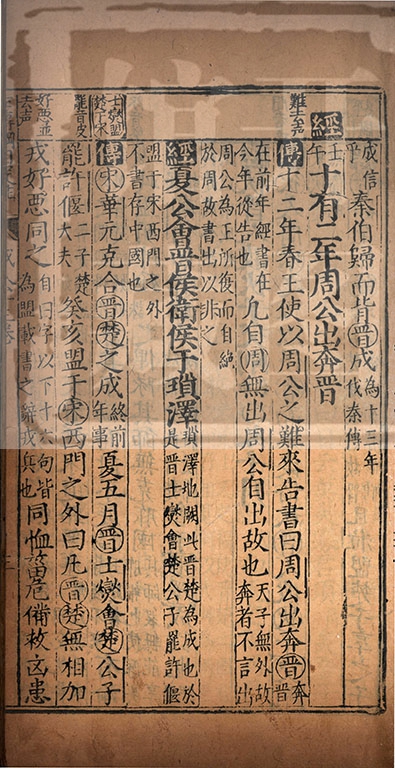 成信乎秦伯歸而背晉成為十三年伐秦傳
經壬午十有二年周公出奔晉
難去聲
傳十二年春王使以周公之難來告書曰周公出奔晉奔晉
在前年經書在今年從告也凡自周無出周公自出故也天子無外故奔者不言出
周公為王所復而自絶於周故書出以非之
經夏公會晉侯衛侯于瑣澤瑣澤地闕此晉楚為成也於是晉士燮會楚公子罷許偃
盟于宋西門之外不書存中國也
士燮盟楚于宋
傳宋華元克合晉楚之成終前年事夏五月晉士燮會楚公子
罷音皮
罷許偃二子楚大夫癸亥盟于宋西門之外曰凡晉楚無相加
好惡並去聲
戎好惡同之自曰字以下十六句皆為盟載書之辭戎兵也同恤菑危備救凶患